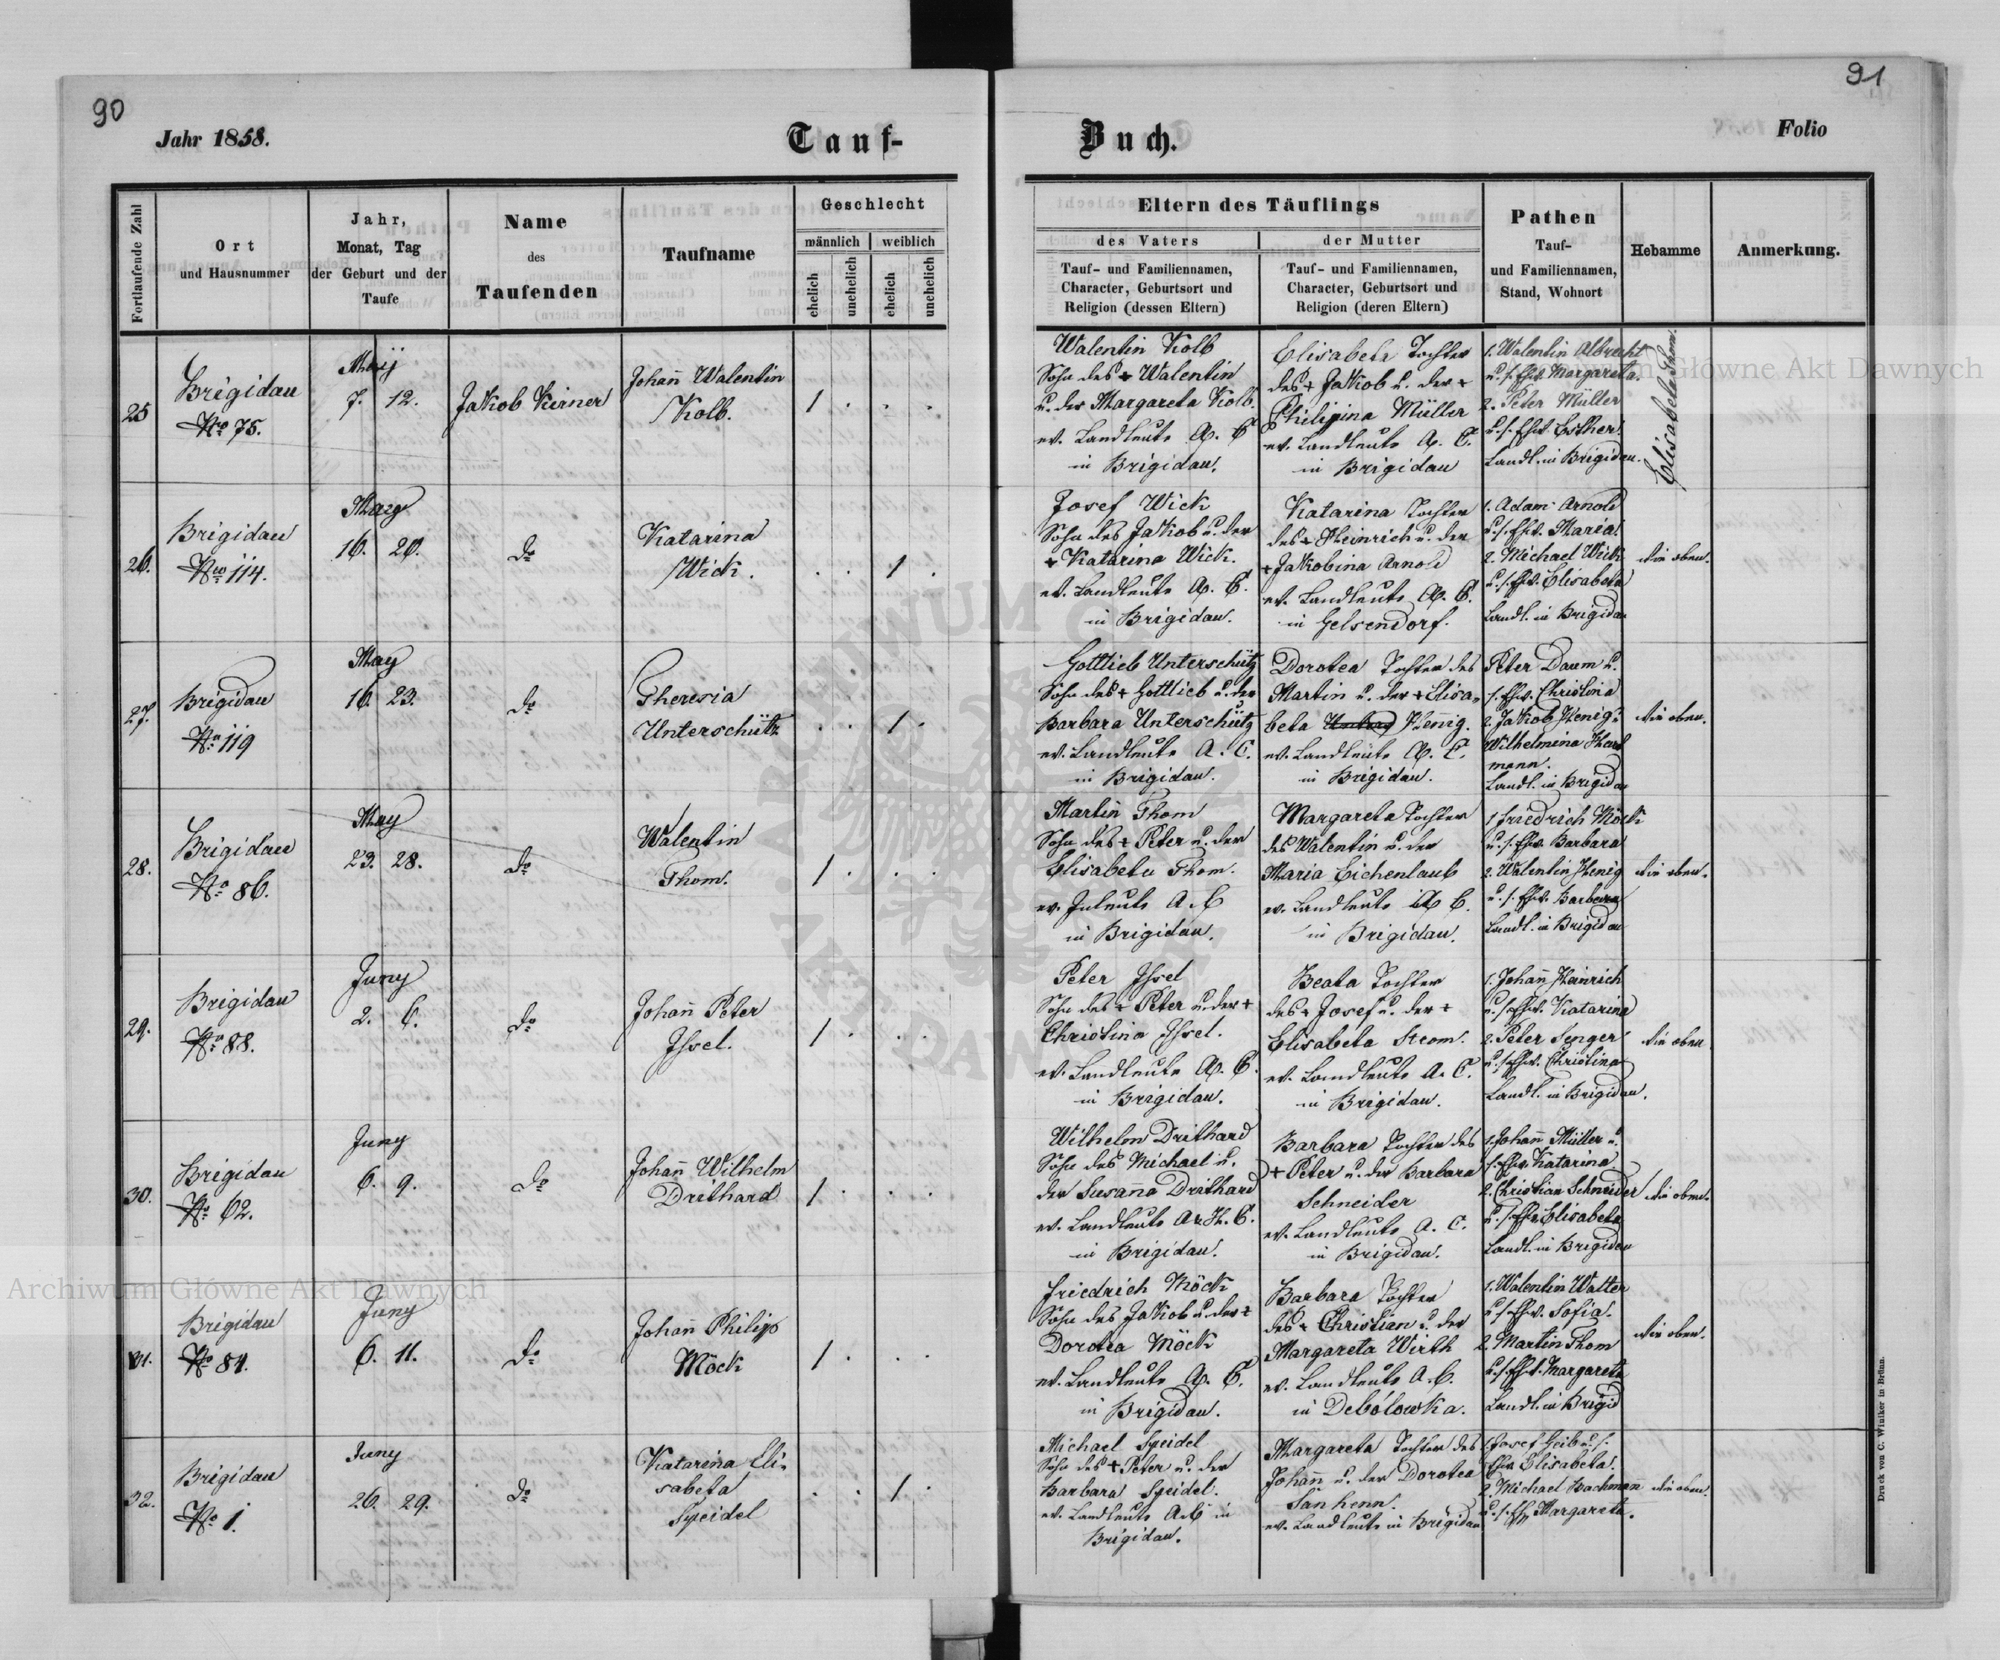 90
91
Jahr 1858.
Tauf-
Buch.
Folio
Fortlaufende Zahl
Ort
und Hausnummer
Jahr,
Monat, Tag
der Geburt und der
Taufe
Name
des
Taufenden
Taufname
Geschlecht
männlich
weiblich
ehelich
unehelich
ehelich
unehelich
Eltern des Täuflings
des Vaters
Tauf- und Familiennamen,
Character, Geburtsort und
Religion (dessen Eltern)
der Mutter
Tauf- und Familiennamen,
Character, Geburtsort und
Religion (deren Eltern)
Pathen
Tauf-
und Familiennamen,
Stand, Wohnort
Hebamme
Anmerkung.
25
Brigidau
No 75.
Maÿ
7. 12.
Jakob Kirner
Johan̄ Walentin
Kolb.
1 . . .
Walentin Kolb
Sohn des + Walentin
u. der Margareta Kolb.
ev. Landleute A. C.
in Brigidau.
Elisabeta Tochter
des + Jakob u. der +
Philipina Müller
ev. Landleute A. C.
in Brigidau
1. Walentin Albrecht
u. s. Ehw. Margareta.
2. Peter Müller
u. s. Ehw. Esther.
Landl. in Brigidau.
Elisabeta Thom.
26.
Brigidau
No 114.
May
16. 20.
do
Katarina
Wick.
. . 1 .
Josef Wick
Sohn des Jakob u. der
+ Katarina Wick.
ev. Landleute A. C.
in Brigidau.
Katarina Tochter
des + Heinrich u. der
+ Jakobina Arnold
ev. Landleute A. C.
in Gelsendorf.
1. Adam Arnold
u. s. Ehw. Maria.
2. Michael Wick
u. s. Ehw. Elisabeta
Landl. in Brigidau
wie oben.
27.
Brigidau
No 119
May
16. 23.
do
Theresia
Unterschütz
. . 1 .
Gottlieb Unterschütz
Sohn des + Gottlieb u. der
Barbara Unterschütz
ev. Landleute A. C.
in Brigidau.
Dorotea Tochter des
Martin u. der + Elisa-
beta Henig.
ev. Landleute A. C.
in Brigidau.
Peter Daum u.
s. Ehw. Christina
2. Jakob Henig u.
Wilhelmina Hart
mann.
Landl. in Brigidau
wie oben.
28.
Brigidau
No 86.
May
23. 28.
do
Walentin
Thom.
1 . . .
Martin Thom
Sohn des + Peter u. der
Elisabeta Thom.
ev. A. C
in Brigidau.
Margareta Tochter
des Walentin u. der
Maria Eichenlaub
ev. Landleute A C.
in Brigidau.
1 Friedrich Möck
u. s. Ehw. Barbara
2. Walentin Henig
u. s. Ehw. Barbara
Landl. in Brigidau
wie oben.
29.
Brigidau
No 88.
Juny
2. 6.
do
Johan̄ Peter
Issel.
1 . . .
Peter Issel
Sohn des + Peter u. der +
Christina Issel.
ev. Landleute A. C.
in Brigidau.
Beata Tochter
des + Josef u. der +
Elisabeta Strom.
ev. Landleute A. C.
in Brigidau.
1. Johan̄ Heinrich
u. s. Ehw. Katarina
2. Peter Senger
u. s. Ehw. Christina
Landl. in Brigidau.
wie oben
30.
Brigidau
No 62.
Juny
6. 9.
do
Johan̄ Wilhelm
Drithard
1 . . .
Wilhelm Drithard
Sohn des Michael u.
der Susan̄a Drithard
ev. Landleute A. H. C.
in Brigidau.
Barbara Tochter des
+ Peter u. der Barbara
Schneider
ev. Landleute A. C.
in Brigidau.
1. Johan̄ Müller u.
s. Ehw. Katarina
2. Christian Schneider
u. s. Ehw. Elisabeta
Landl. in Brigidau
wie oben.
31.
Brigidau
No 84.
Juny
6. 11.
do
Johan̄ Philipp
Möck
1 . . .
Friedrich Möck
Sohn des Jakob u. der +
Dorotea Möck
ev. Landleute A. C.
in Brigidau.
Barbara Tochter
des + Christian u. der
Margareta Wirth
ev. Landleute A. C.
in Debolowka.
1. Walentin Walter
u. s. Ehw. Sofia.
2. Martin Thom
u. s. Ehw. Margareta
Landl. in Brigid
wie oben.
32.
Brigidau
No 1.
Juny
26. 29.
do
Katarina Eli-
sabeta
Speidel
. . 1 .
Michael Speidel
Sohn des + Peter u. der
Barbara Speidel.
ev. Landleute A. C in
Brigidau.
Margareta Tochter des
Johan̄ u. der Dorotea
Sanhenn.
ev. Landleute in Brigidau
1. Josef Geib u. s.
Ehw. Elisabeta.
2. Michael Bachman̄
u. s. Ehw Margareta.
wie oben.
Druck von C. Winiker in Brünn.
Archiwum Główne Akt Dawnych
Archiwum Główne Akt Dawnych